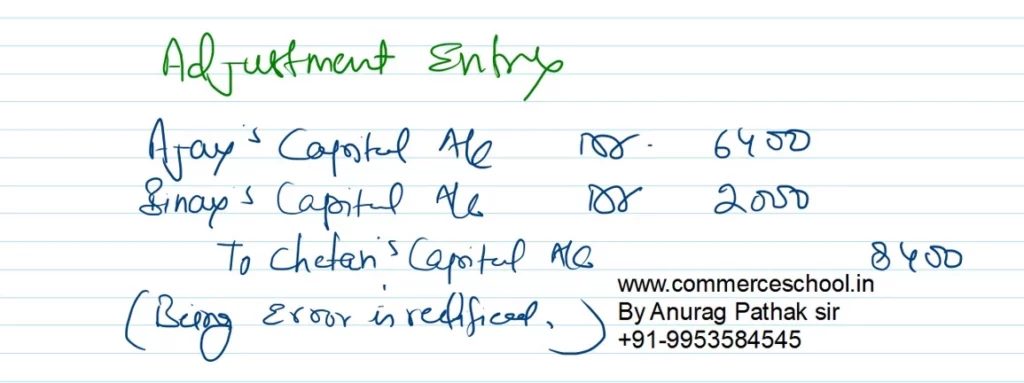 Adjustment Entry
Ajay's Capital A/c Dr. 6400
Binay's Capital A/c Dr 2000
To Chetan's Capital A/c 8400
(Being Error is rectified.)
www.commerceschool.in
By Anurag Pathak sir
+91-9953584545